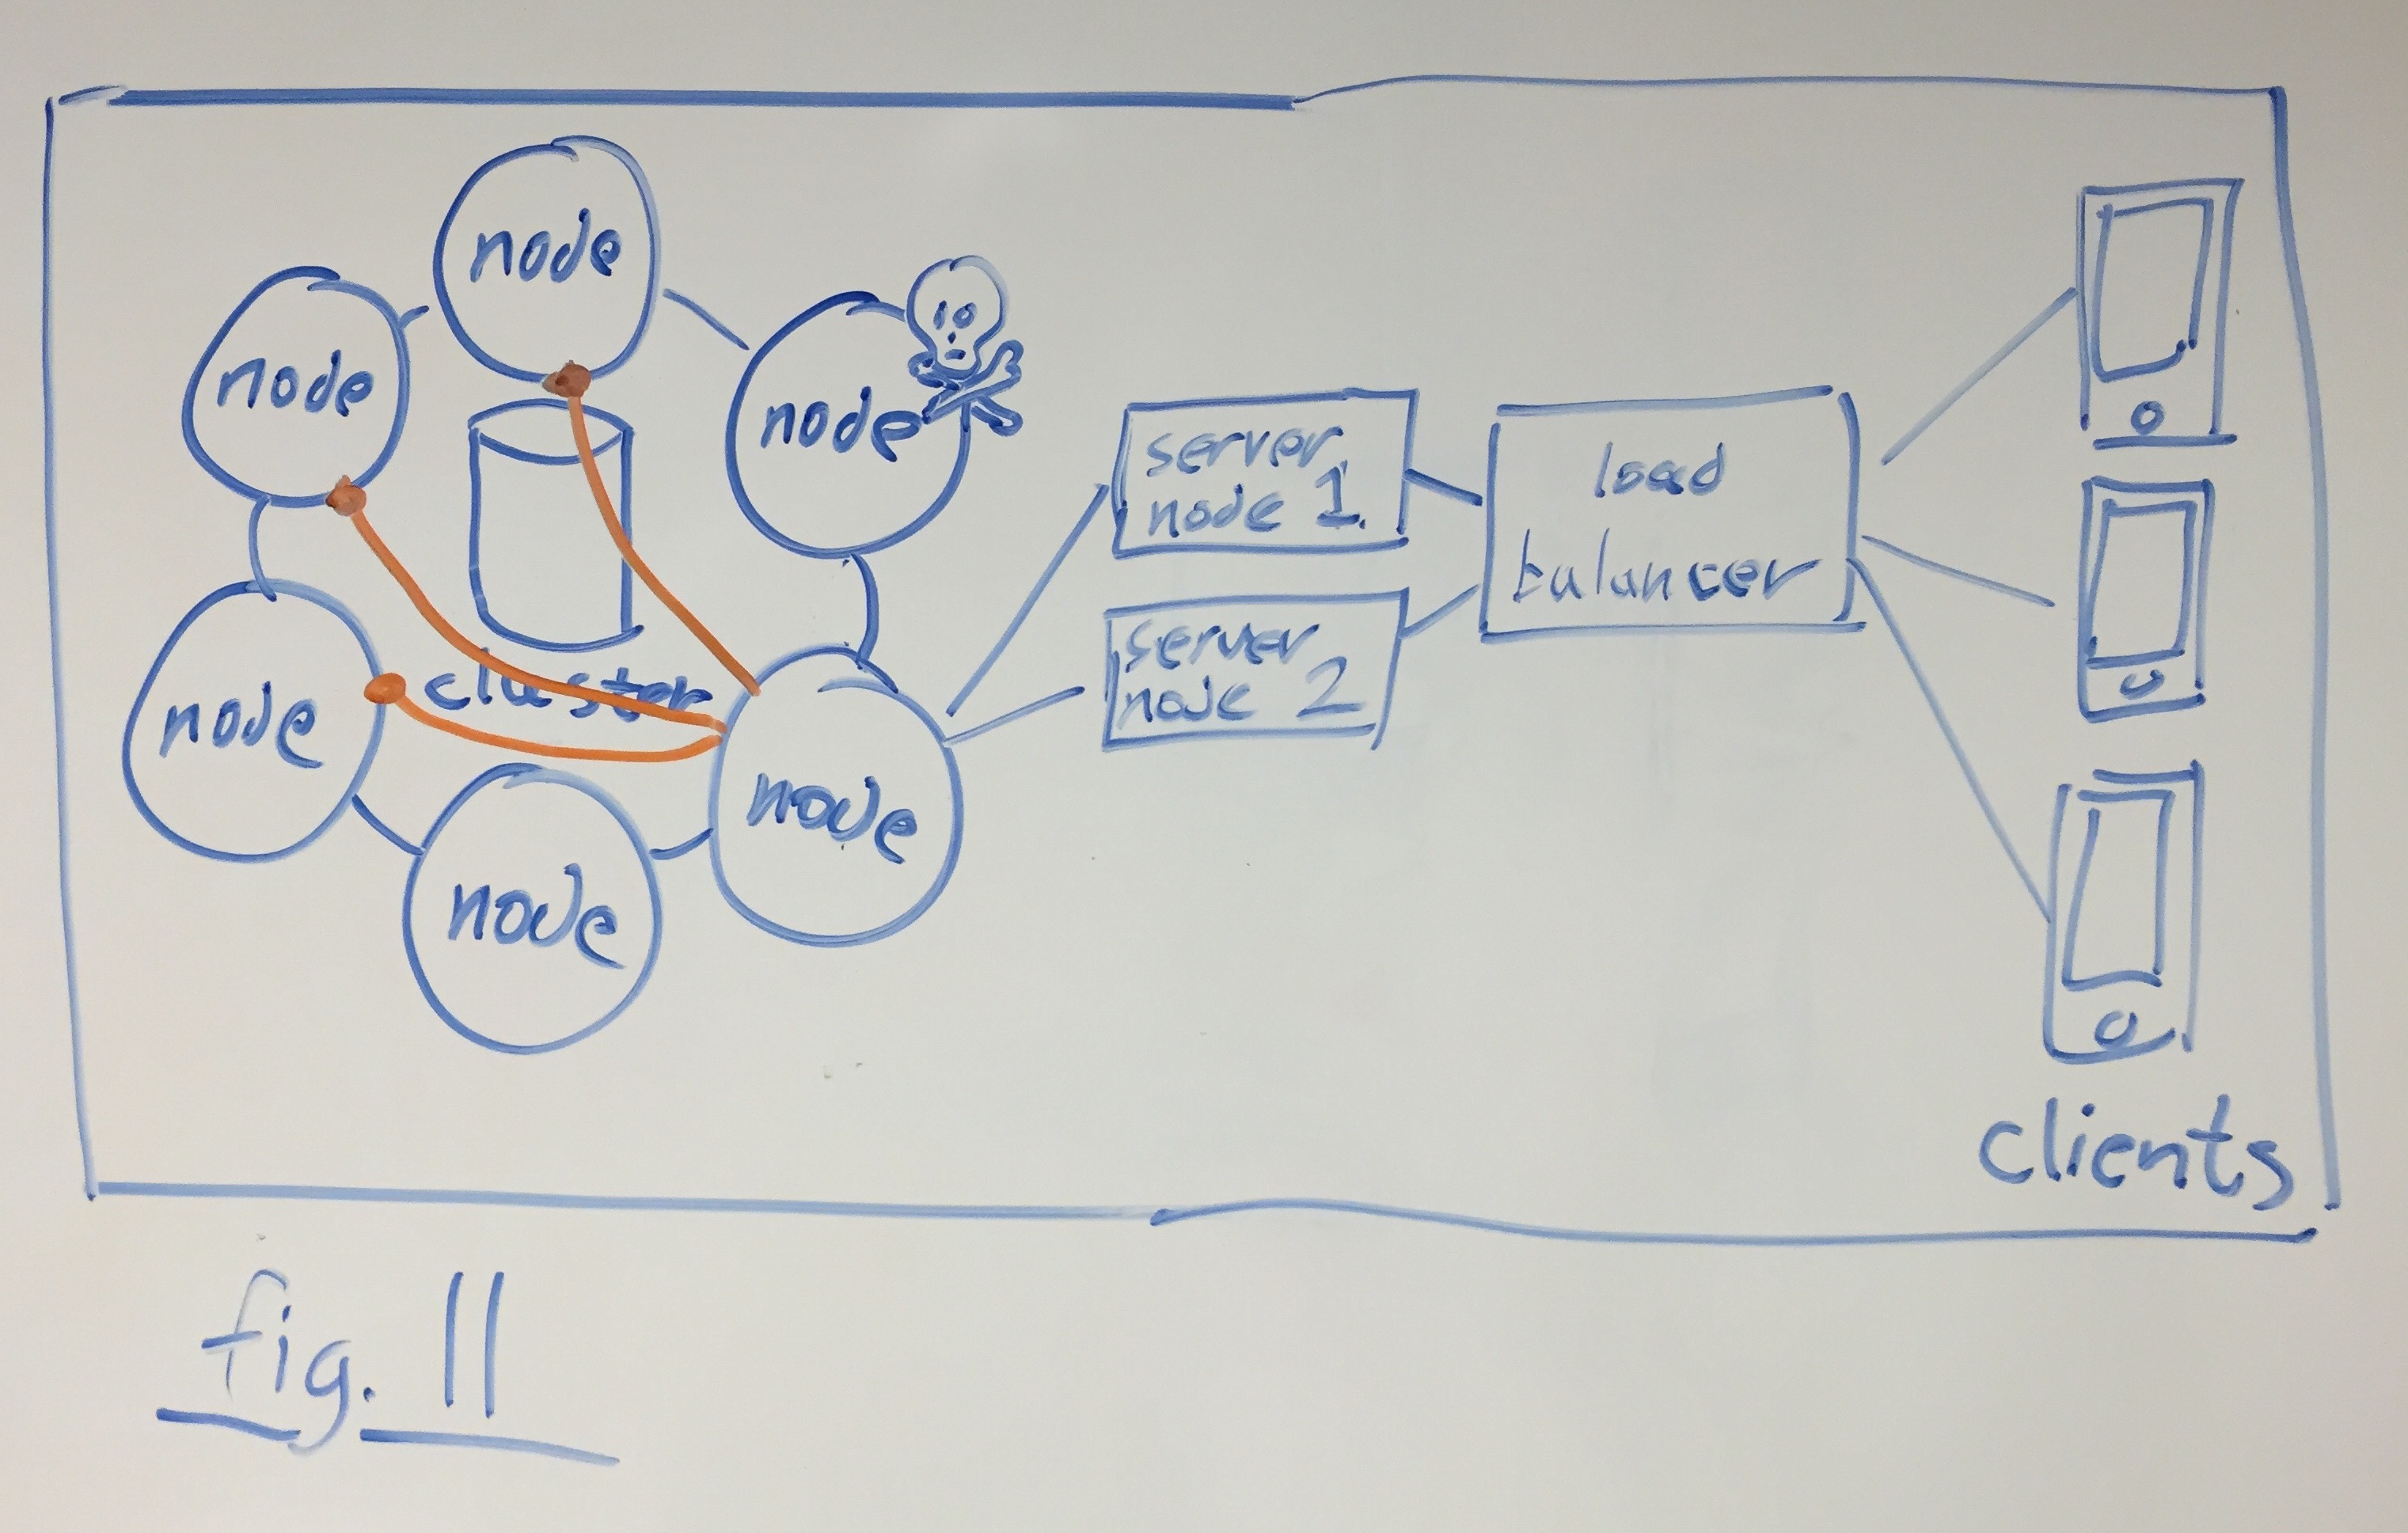 node
node
node
node
node
node
cluster
server
node 1
server
node 2
load
balancer
clients
fig. 11